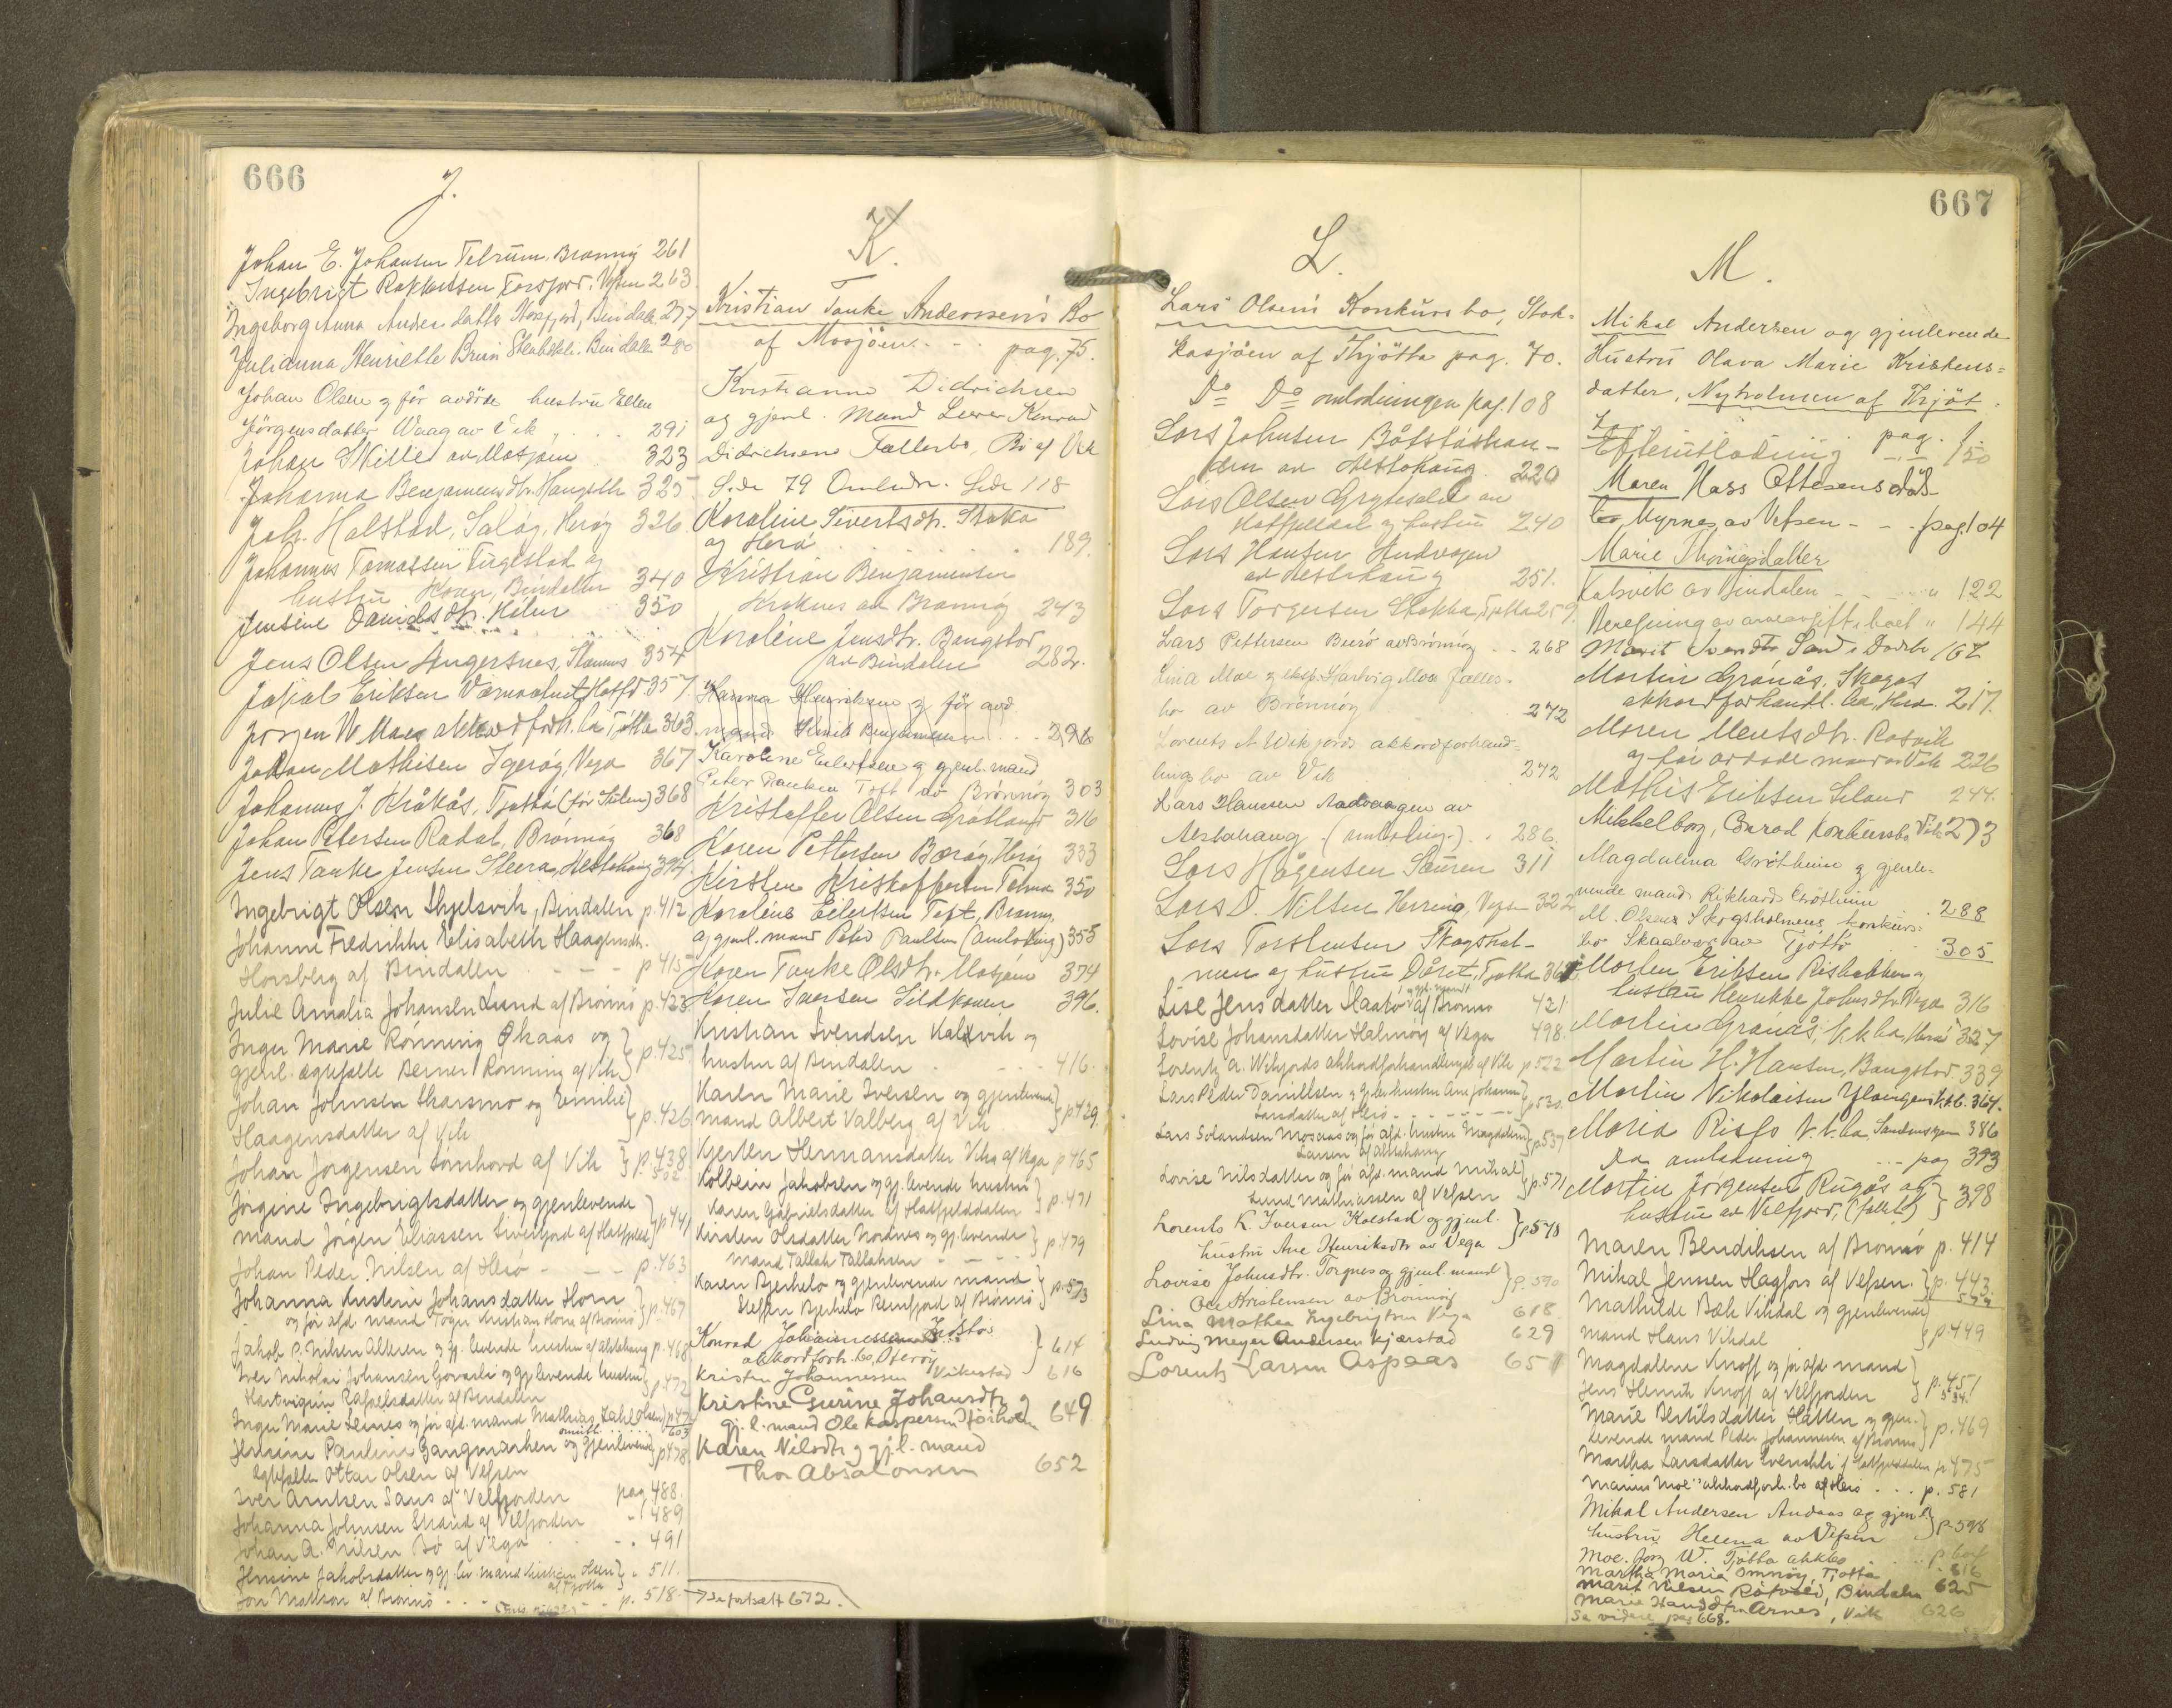 666
J.
Johan E. Johansen Tilrum, Brønnøy 261
Ingebrigt Torsfjord, Vefsen 263
Ingeborg Anna Andersdatter Bindalen 277
Julianna Henriette Brun Bindalen 280
Johan Olsen og før avdøde hustru Ellen
Jørgensdatter Waag av Vik . . . 291
Johan Skille av Mosjøen 323
Johanna Benjaminsdtr. 325
Joh. Halstad, Saløy, Herøy 326
Johannes Tomassen og
hustru Bindalen 340
Jensine Danielsdtr. 350
Jens Olsen Angersnes, 354
Jakob Eriksen Hatfd 357
Jørgen W. Moe akkordforh. bo Tjøtta 363
Johan Mathisen Igerøy, Vega 367
Johannes J. Kråkås, Tjøtta 368
Johan Petersen Rødal, Brønnøy 368
Jens Tanke Jensen Alstahaug 394
Ingebrigt Olsen Skjelsvik, Bindalen p. 412
Johanne Fredrikke Elisabeth Haagensdtr.
Horsberg af Bindalen - - - p 415
Julie Amalia Johansen Lund af Brønnø p. 423
Inger Marie Rønning og
gjenl. ægtefælle Berner Rønning af Vik p. 425
Johan Johnsen Skarsmo og Emilie
Haagensdatter af Vik p. 426
Johan Jørgensen Sømhovd af Vik p. 438
502
Jørgine Ingebrigtsdatter og gjenlevende
mand Jørgen Eliassen af Hatfjeld p 441
Johan Peder Nilsen af Herø - - - p. 463
Johanna Kristine Johansdatter Horn
og før afd. mand Kristian Horn af Brønnø p. 467
Jakob P. Nilsen og gj. levende hustru af Alstahaug p. 468
Iver Nikolai Johansen og gj. levende hustru
af Bindalen p. 472
Inger Marie og før afd. mand Mathias
603
Jensine Pauline Gangmarken og gjenlevende p 478
ægtefælle Ottar Olsen af Vefsen
Iver Arntsen Saus af Velfjorden pag 488.
Johanna Johnsen Strand af Velfjorden - " 489
Johan A. Nilsen Bø af Vega - . 491
Jensine Jakobsdatter og gj. lev. mand Kristian Olsen
af Tjøtta " 511.
Jon Mattson af Brønnø - - - p. 518
K.
Kristian Tanke Andersen's Bo
af Mosjøen. - - pag. 75.
Kristianne Didrichsen
og gjenl. Mand Konrad
Didrichsens Fællesbo, Bø af Vik
Side 79 Omlodn. Side 118
Karoline Sivertsdtr. Stokka
og Herø . . . 189.
Kristian Benjaminsen
av Brønnøy 243
Karoline Jensdtr. Bangstad
av Bindalen 282.
Hanna Henriksen og før avd.
mand Benjaminsen . . . 296
Karoline Eilertsen og gjenl. mand
Peter Paulsen Toft av Brønnøy 303
Kristoffer Olsen Grøtland 316
Karen Pettersen Borøy, Herøy 333
Kirsten Kristoffersen 350
Karoline Eilertsen Toft, Brønnøy,
og gjenl. mand Peter Paulsen (omlodning) 355
Karen Tanke Olsdtr. Mosjøen 374
Karen Iversen Sildhopen 396.
Kristian Svendsen Kalvik og
hustru af Bindalen - - - 416.
Karen Marie Iversen og gjenlevende
mand Albert Valberg af Vik p 429
Kjersten Hermansdatter Vika af Vega p 465
Kolbein Jakobsen og gj. levende hustru
Karen Gabrielsdatter af Hatfjelddalen p. 471
Kirsten Olsdatter Nordnes og gj. levende
mand Tallak Tallaksen - - - p. 479
Karen Bjerkelo og gjenlevende mand
Steffen Bjerkelo Remfjord af Brønnø p. 573
Konrad Johannessen
akkordforh. bo, Oterøy 614
Kristen Johannessen Vikestad 616
Kristine Gurine Johansdtr. og
gj. l. mand Ole Kaspersen 649
Karen Nilsdtr. og gj. l. mand
Thor Absalonsen 652
→ Se fortsatt 672.
667
L.
Lars Olsens Konkursbo, Stok-
kasjøen af Thjøtta pag. 70.
Do Do omlodningen pag. 108
Lars Johnsen Båtståstran-
den av Alstahaug 220
Lars Olsen Gryteselet av
Hatfjelddal og hustru 240
Lars Hansen Andvagen
av Alstahaug 251.
Lars Torgersen Stokka, Tjøtta 259.
Lars Pettersen Burø av Brønnøy . . 268
Lina Moe og eksp. Hartvig Moe fælles-
bo av Brønnøy 272
Lorents A. Wikfjords akkordforhand-
lings bo av Vik 272
Lars Hanssen Aadvaagen av
Alstahaug (omlodning.) . 286.
Lars Hågensen Sauren 311
Lars O. Nilsen Herring, Vefsen 322
Lars Torstensen Skogshol-
men og hustru Dåret, Tjøtta 362
Lise Jensdatter af Brønnø 421
Lovise Johansdatter Halmøy af Vega 498.
Lorentz A. Wikfjords akkordforhandlingsbo af Vik p 522
Lars Peder Daniellsen og gj.lev. hustru Ane Johanna
Larsdatter af Herø - - - - p 530.
Lars Solandsen Mosaas og før afd. hustru Magdalena
Larsen af Alstahaug p. 537
Lovise Nilsdatter og før afd. mand Mikal
Lund Mathiassen af Vefsen p. 571
Lorents K. Iversen Kolstad og gjenl.
hustru Ane Henriksdtr. av Vega p. 578
Lovise Johnsdtr. Torgnes og gjenl. mand
Ole Kristensen av Brønnøy p. 590
Lina Mathea Ingebrigtsen Vega 618
Ludvig Meyer Andersen Kjærstad 629
Lorents Larsen Aspaas 651
M.
Mikal Andersen og gjenlevende
Hustru Olava Marie Kristens-
datter, Nyholmen af Thjøt.
Efterutlodning pag. 150
Maren Hass Ottesensdat-
ter, Myrnes av Vefsen - - - pag. 104
Marie Thomasdatter
Kalsvik av Bindalen - - - " 122
Beregning av arveavgift i boet " 144
Marit 162
Martin Granås, Skaga
akkordforhandl. bo, Herø. 217.
Maren Mentsdtr. Rosvik
og før avdøde mand av Vik 226
Mathis Eriksen Seland 244.
Mikkelborg, Conrad Konkursbo Vik 273
Magdalena Grøtheim og gjenle-
vende mand Rikhard Grøtheim . 288
M. Olsens Skogsholmens konkurs-
bo Skaalvær av Tjøtta . . 305
Morten Eriksen og
hustru Henrikke Johnsdtr. Vega 316
Martin Granås, k.k.bo, Herø 327
Martin H. Hansen, Bangstad. 339
Martin Nikolaisen Ylvingen k.k.b. 364.
Maria Risfo k.k.bo, 386
Do omlodning - - - pag 393
Martin Jørgensen Rugås og
hustru av Velfjord, (fallit) 398
Maren Bendiksen af Brønnø p. 414
Mikal Jenssen Hagfors af Vefsen. p. 443
Mathilde Bæk Vikdal og gjenlevende
mand Hans Vikdal p. 449
Magdalene Knoff og før afd. mand
Jens Henrik Knoff af Velfjorden p. 451
534.
Marie Bertilsdatter Hatten og gjen-
levende mand Peder Johannesen af Brønnø p. 469
Martha Larsdatter af Hatfjelddalen p. 475
Marius Moe's akkordforh. bo af Herø . . . p. 581
Mikal Andersen Andaas og gjenl.
hustru Helena av Vefsen p. 598
Moe. Jørg. W. Tjøtta akkbo . . . p. 604
Martha Maria Omnøy, Tjøtta . 616
Marit Nilsen, Bindalen 625
Marie Hansdtr. Arnes, Vik 626
Se videre pag 668.